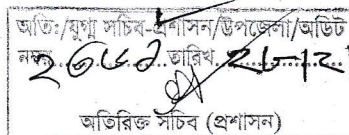 অতি:/যুগ্ম সচিব-প্রশাসন/উপজেলা/অডিট
নম্বর.........তারিখ 21-12
অতিরিক্ত সচিব (প্রশাসন)